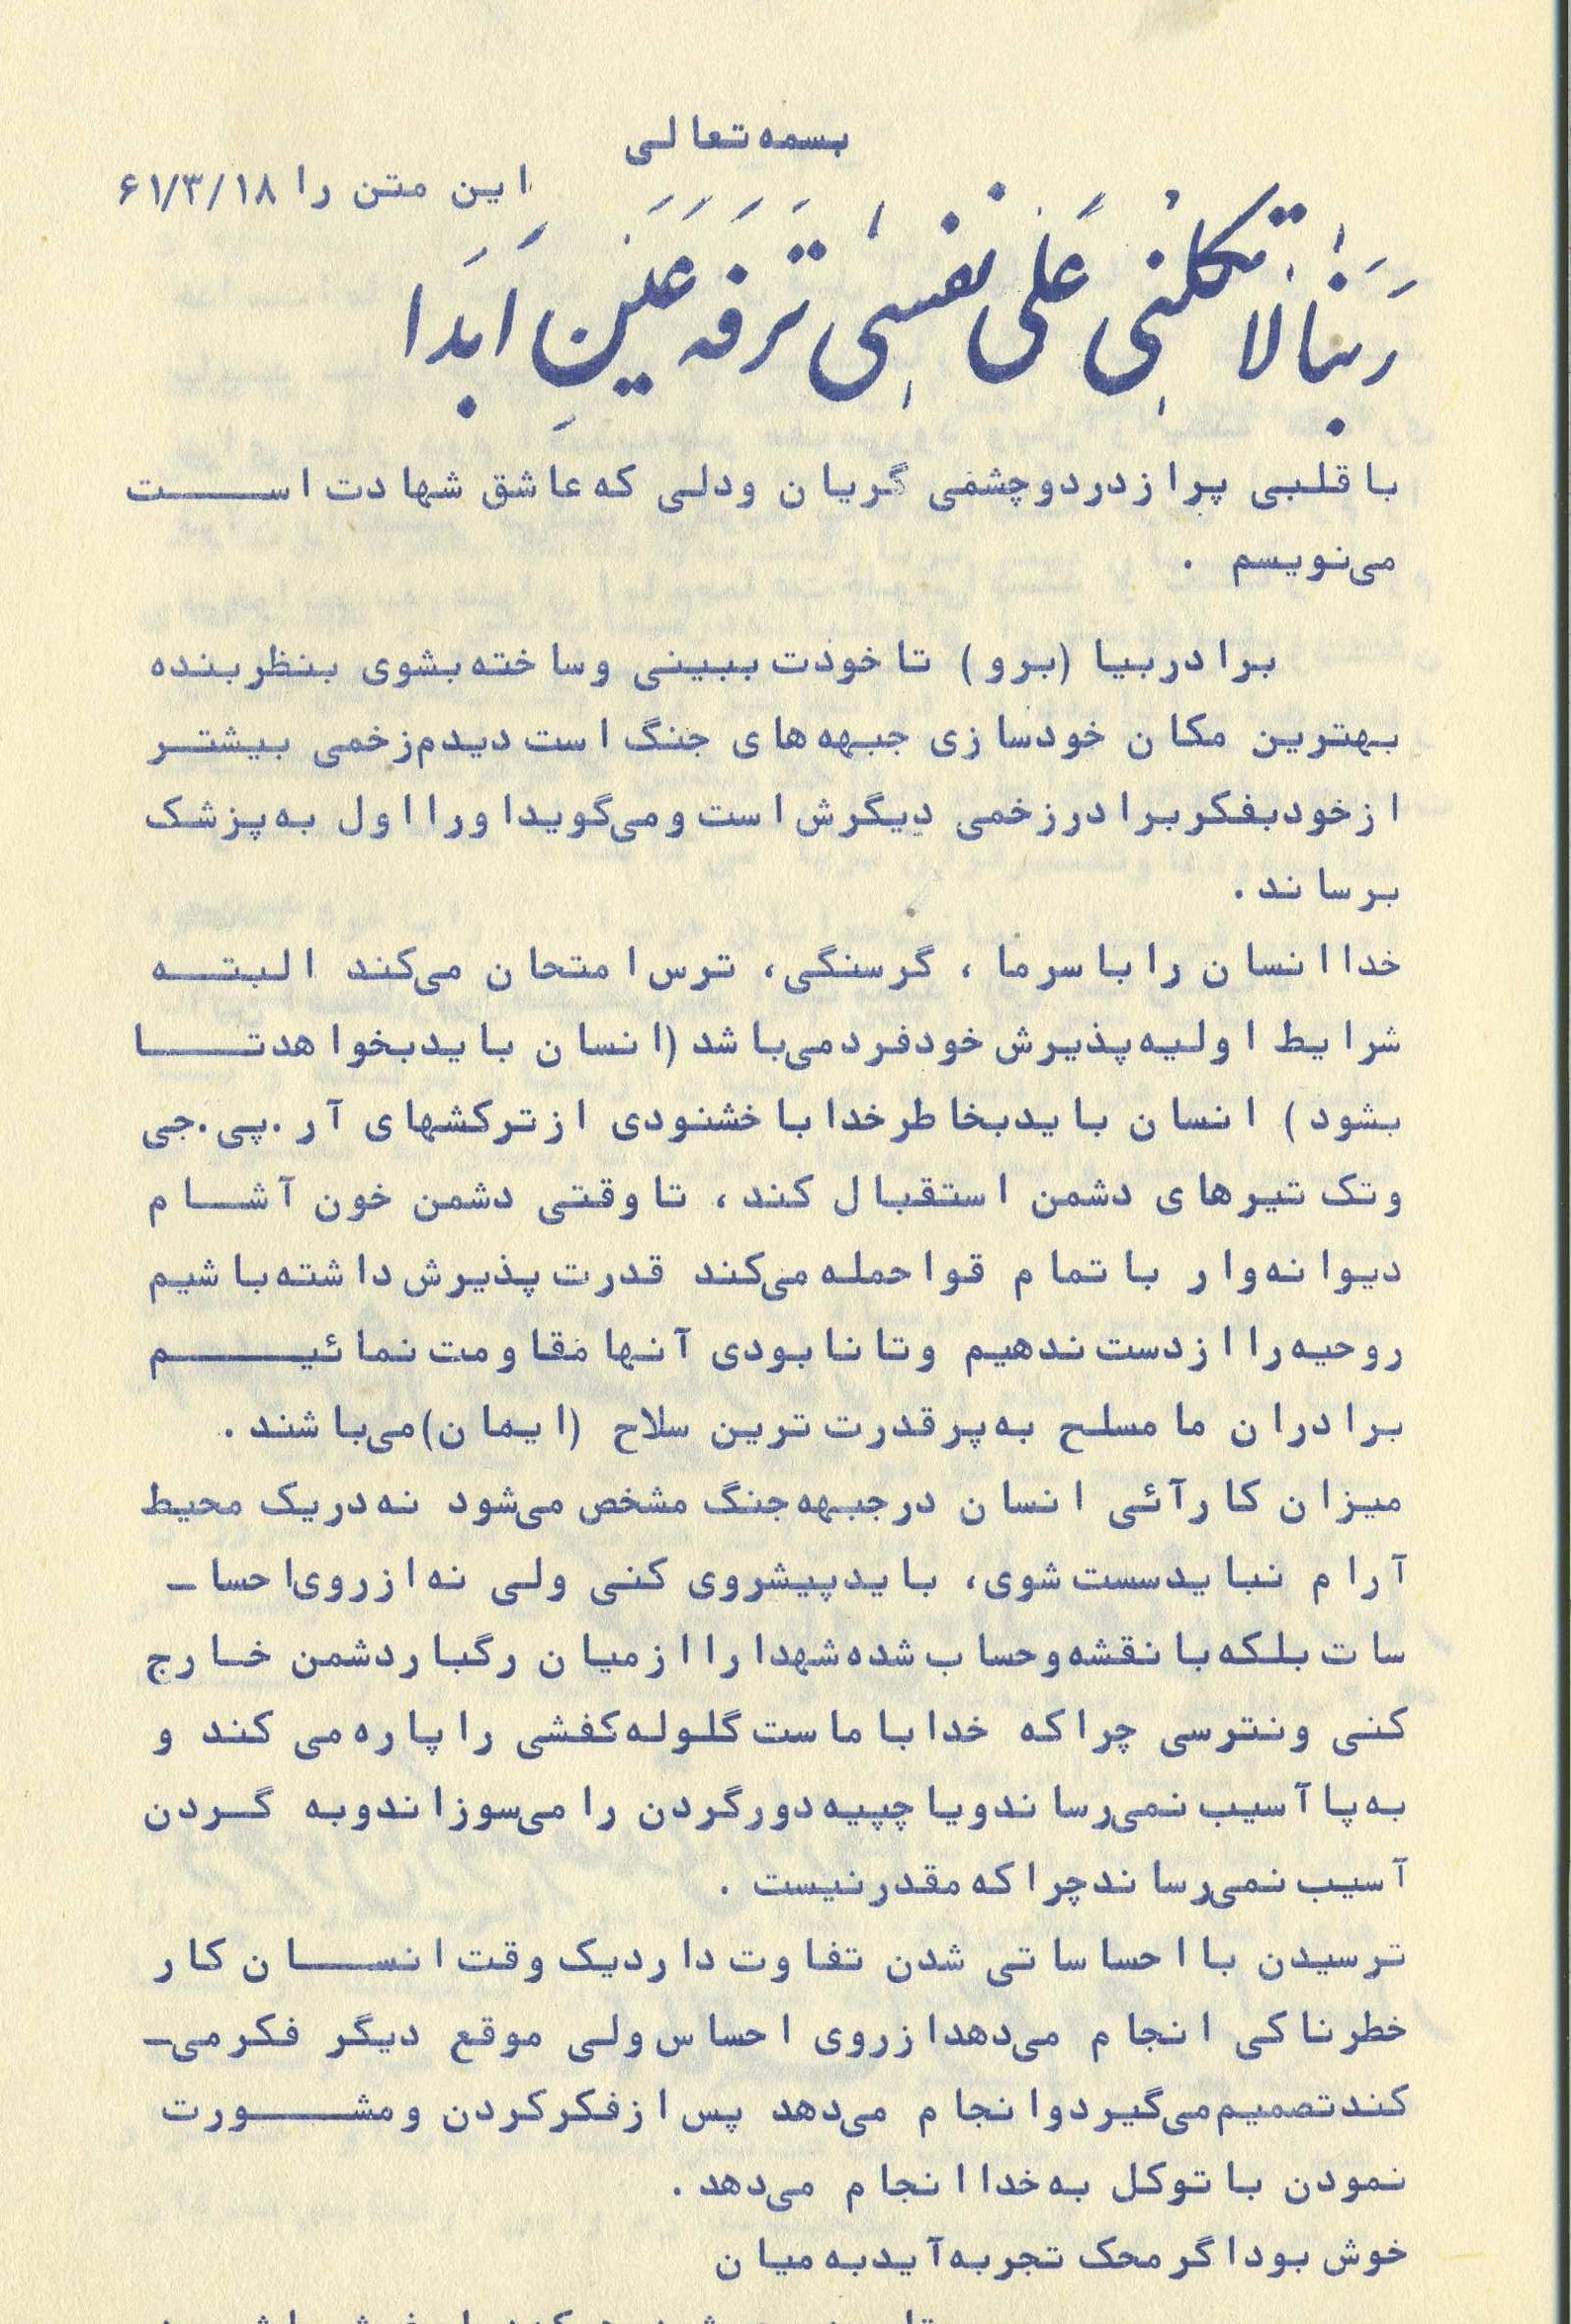 بسمه تعالی
این متن را ۶۱/۳/۱۸
رَبَّنا لا تَکِلْنی عَلی نَفْسی تَرَفَه عَیَنِ اَبَدا
با قلبی پر از درد و چشمی گریان و دلی که عاشق شهادت اســـت
می‌نویسم .
برادر بیا (برو) تا خودت ببینی و ساخته بشوی بنظر بنده
بهترین مکان خودسازی جبهه‌های جنگ است دیدم زخمی بیشتـر
از خود بفکر برادر زخمی دیگرش است و می‌گوید او را اول به پزشک
برساند .
خدا انسان را با سرما ، گرسنگی، ترس امتحان می‌کند البتــه
شرایط اولیه پذیرش خود فرد می‌باشد (انسان باید بخواهد تــا
بشود) انسان باید بخاطر خدا با خشنودی از ترکشهای آر.پی.جی
و تک تیرهای دشمن استقبال کند، تا وقتی دشمن خون آشـام
دیوانه‌وار با تمام قوا حمله می‌کند قدرت پذیرش داشته باشیم
روحیه را از دست ندهیم و تا نابودی آنها مقاومت نمائیــم
برادران ما مسلح به پر قدرت ترین سلاح (ایمان) می‌باشند .
میزان کارآئی انسان در جبهه جنگ مشخص می‌شود نه در یک محیط
آرام نباید سست شوی، باید پیشروی کنی ولی نه از روی احسا ـ
سات بلکه با نقشه و حساب شده شهدا را از میان رگبار دشمن خـارج
کنی و نترسی چرا که خدا با ماست گلوله کفشی را پاره می کند و
به پا آسیب نمی‌رساند و یا چپیه دور گردن را می‌سوزاند و به گـردن
آسیب نمی‌رساند چرا که مقدر نیست .
ترسیدن با احساساتی شدن تفاوت دارد یک وقت انســان کار
خطرناکی انجام می‌دهد از روی احساس ولی موقع دیگر فکر می‌ـ
کند تصمیم می‌گیرد و انجام می‌دهد پس از فکر کردن و مشــورت
نمودن با توکل به خدا انجام می‌دهد .
خوش بود اگر محک تجربه آید به میان